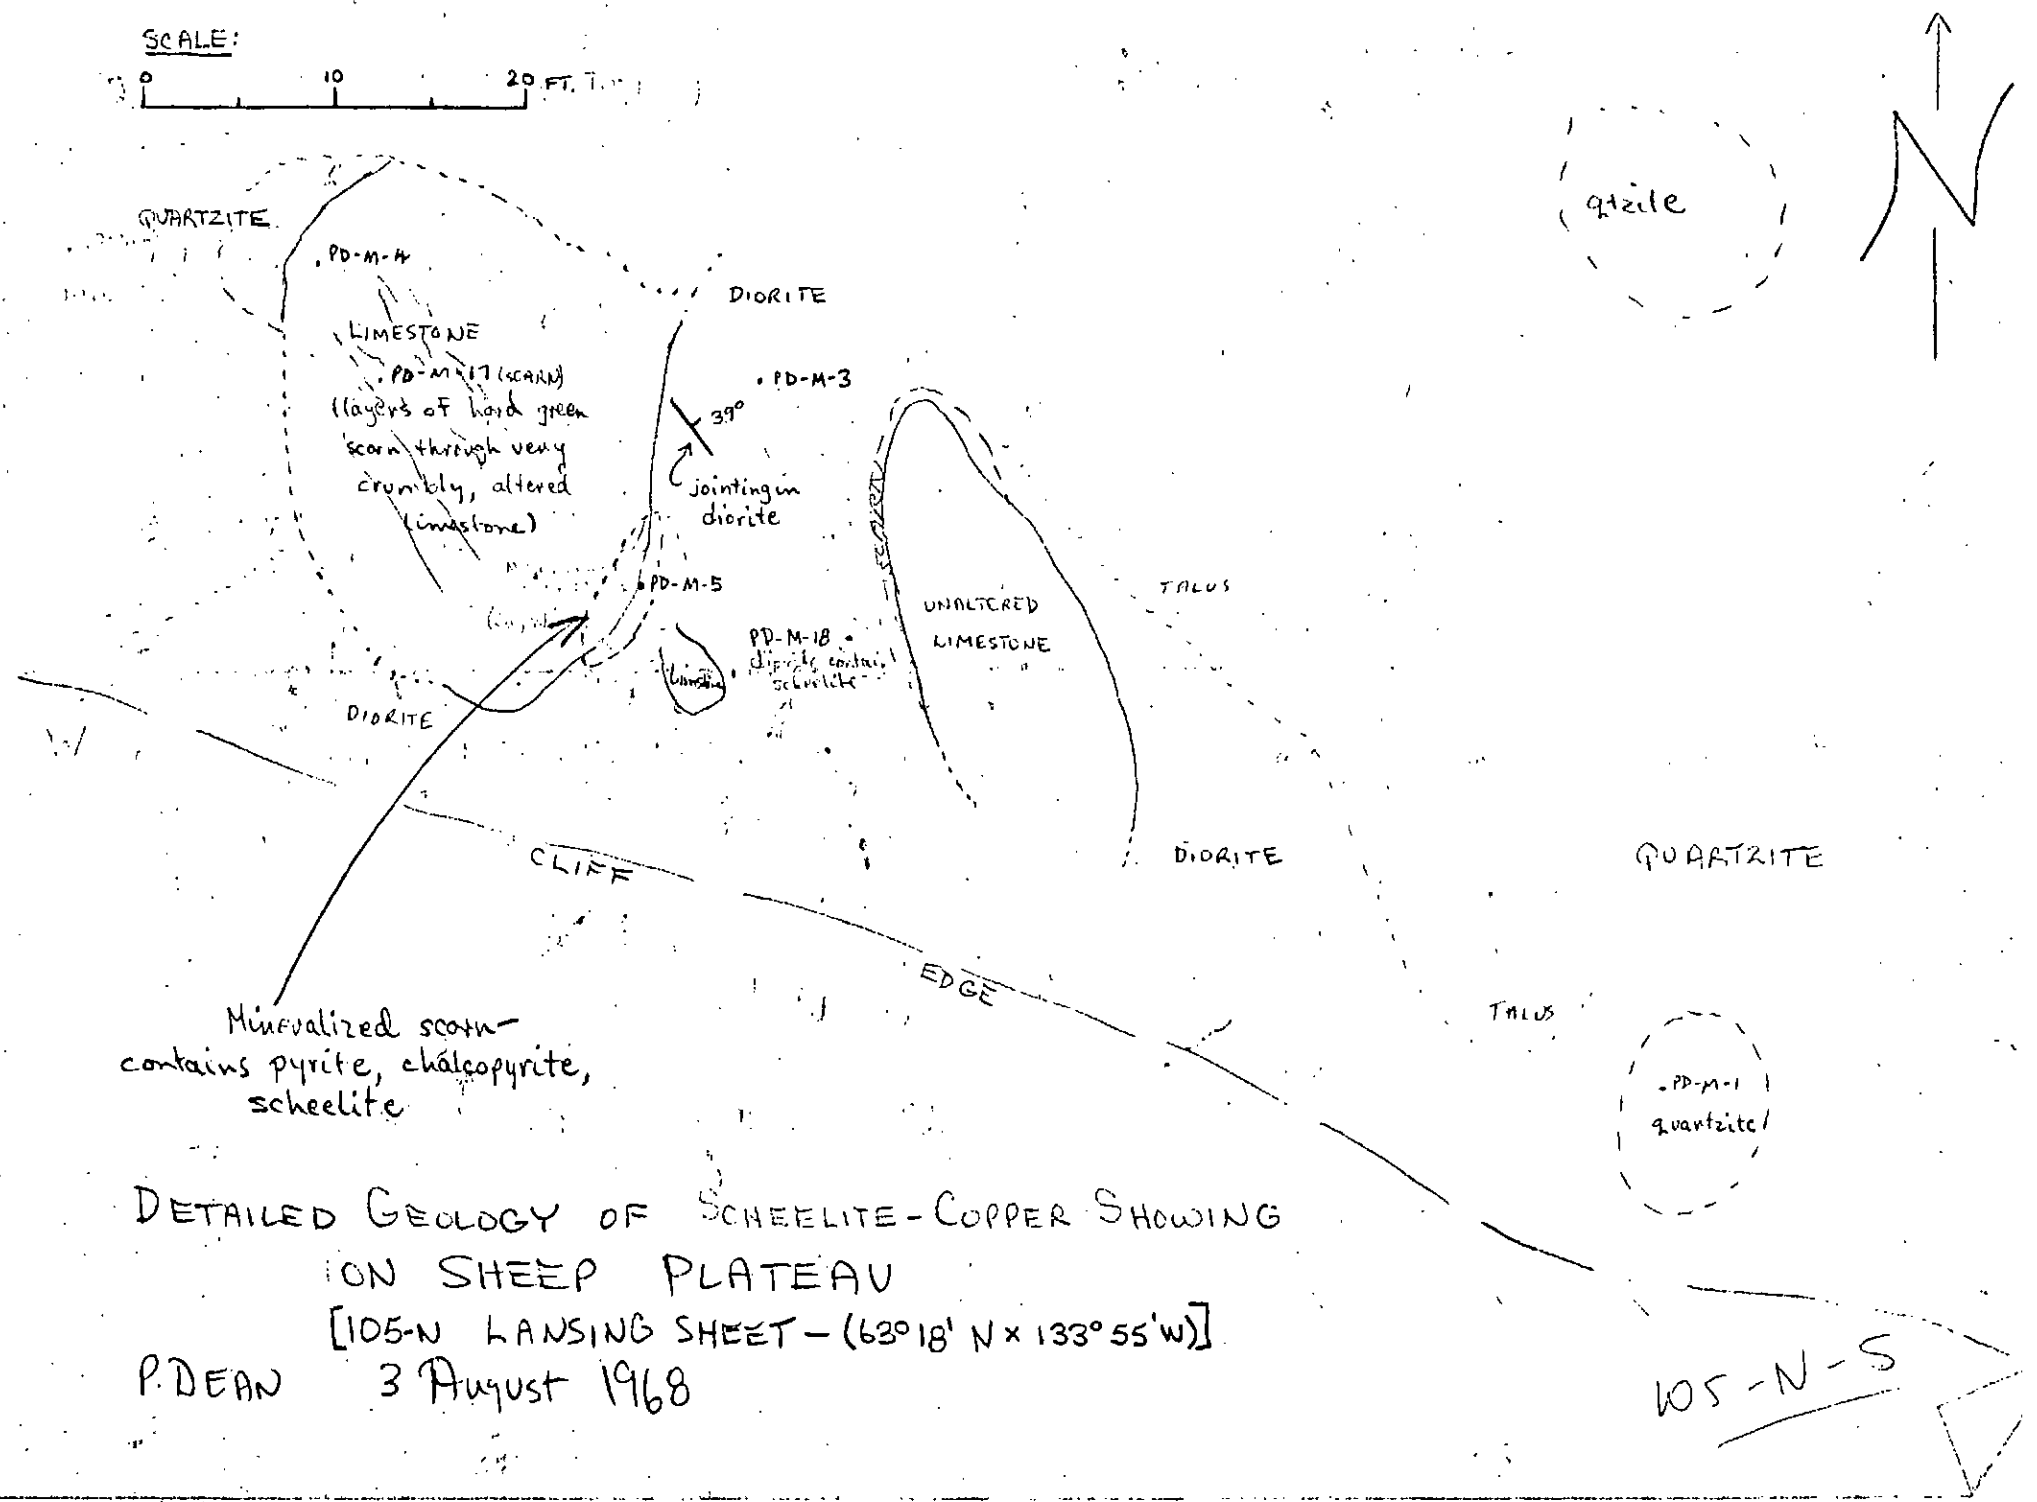 SCALE:
0 10 20 FT.
N
QUARTZITE
qtzite
.PD-M-4
DIORITE
LIMESTONE
.PD-M-17 (SCARN)
(layers of hard green
scarn through very
crumbly, altered
limestone)
.PD-M-3
39°
jointing in
diorite
SCARN
PD-M-5
UNALTERED
LIMESTONE
TALUS
PD-M-18
diorite contain
scheelite
Limestone
DIORITE
CLIFF
EDGE
DIORITE
QUARTZITE
TALUS
.PD-M-1
quartzite
Mineralized scarn-
contains pyrite, chalcopyrite,
scheelite
DETAILED GEOLOGY OF SCHEELITE-COPPER SHOWING
ON SHEEP PLATEAU
[105-N LANSING SHEET - (63°18' N x 133°55'W)]
P. DEAN 3 August 1968
105-N-5